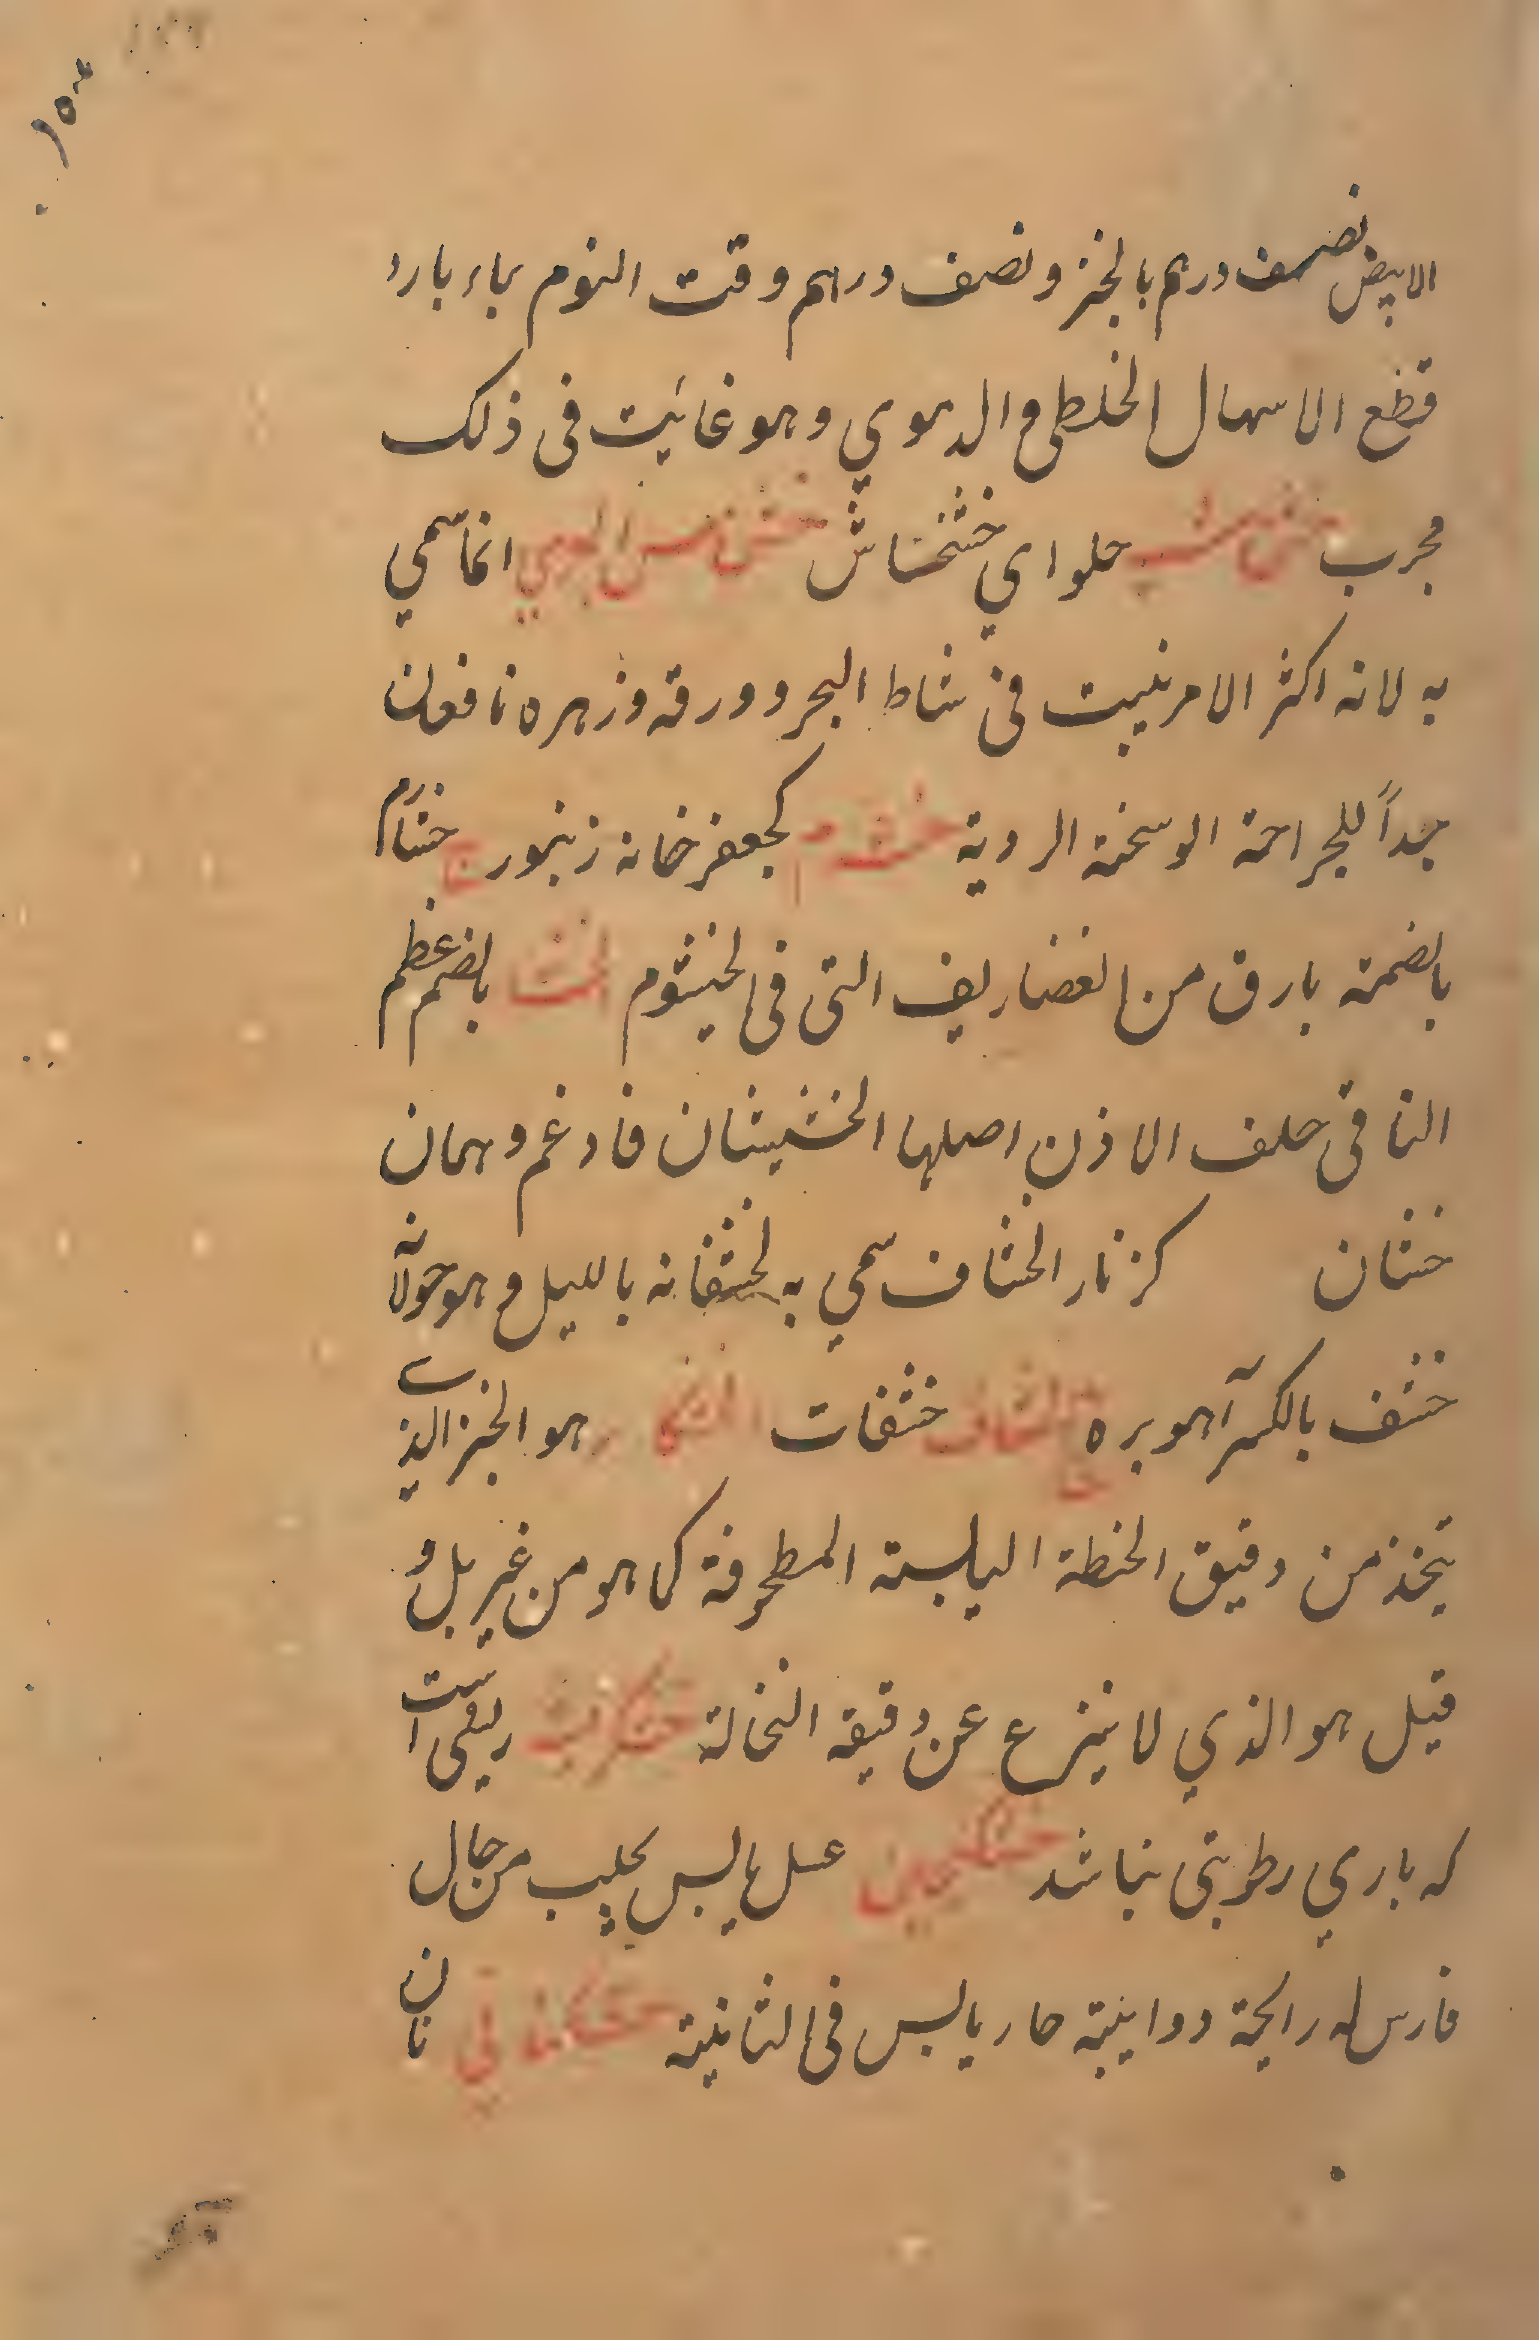 الابيض نصف درهم بالخبز ونصف درهم وقت النوم بماء بارد
قطع الاسهال الخلطي والدموي وهو غايت في ذلك
مجرب حلواي خشخاش خشخاش البحري انما سمي
به لانه اكثر الامر ينبت في شاط البحر وورقه وزهره نافعان
جداً للجراحة الوسخة الردية خشرم كجعفر خانه زنبور ج خشارم
بالضمة بارق من الغضاريف التي في الخيشوم الخشا بالضم عظم
الناقي خلف الاذن اصلها الخشيشان فادغم وهمان
خشان كزنار الخشاف سمي به لخشفانه بالليل وهو جولانه
خشف بالكسر آهو بره خشفات هو الخبز الذي
يتخذ من دقيق الحنطة اليابسة المطحوفة كما هو من غير بل و
قيل هو الذي لا ينزع عن دقيقه النخالة خشكريشه ريمى است
كه باري رطوبتى نباشد خشكنجبين عسل يابس يجلب من جبال
فارس له رائحة دوايية حار يابس في الثانية خشكنانج نان